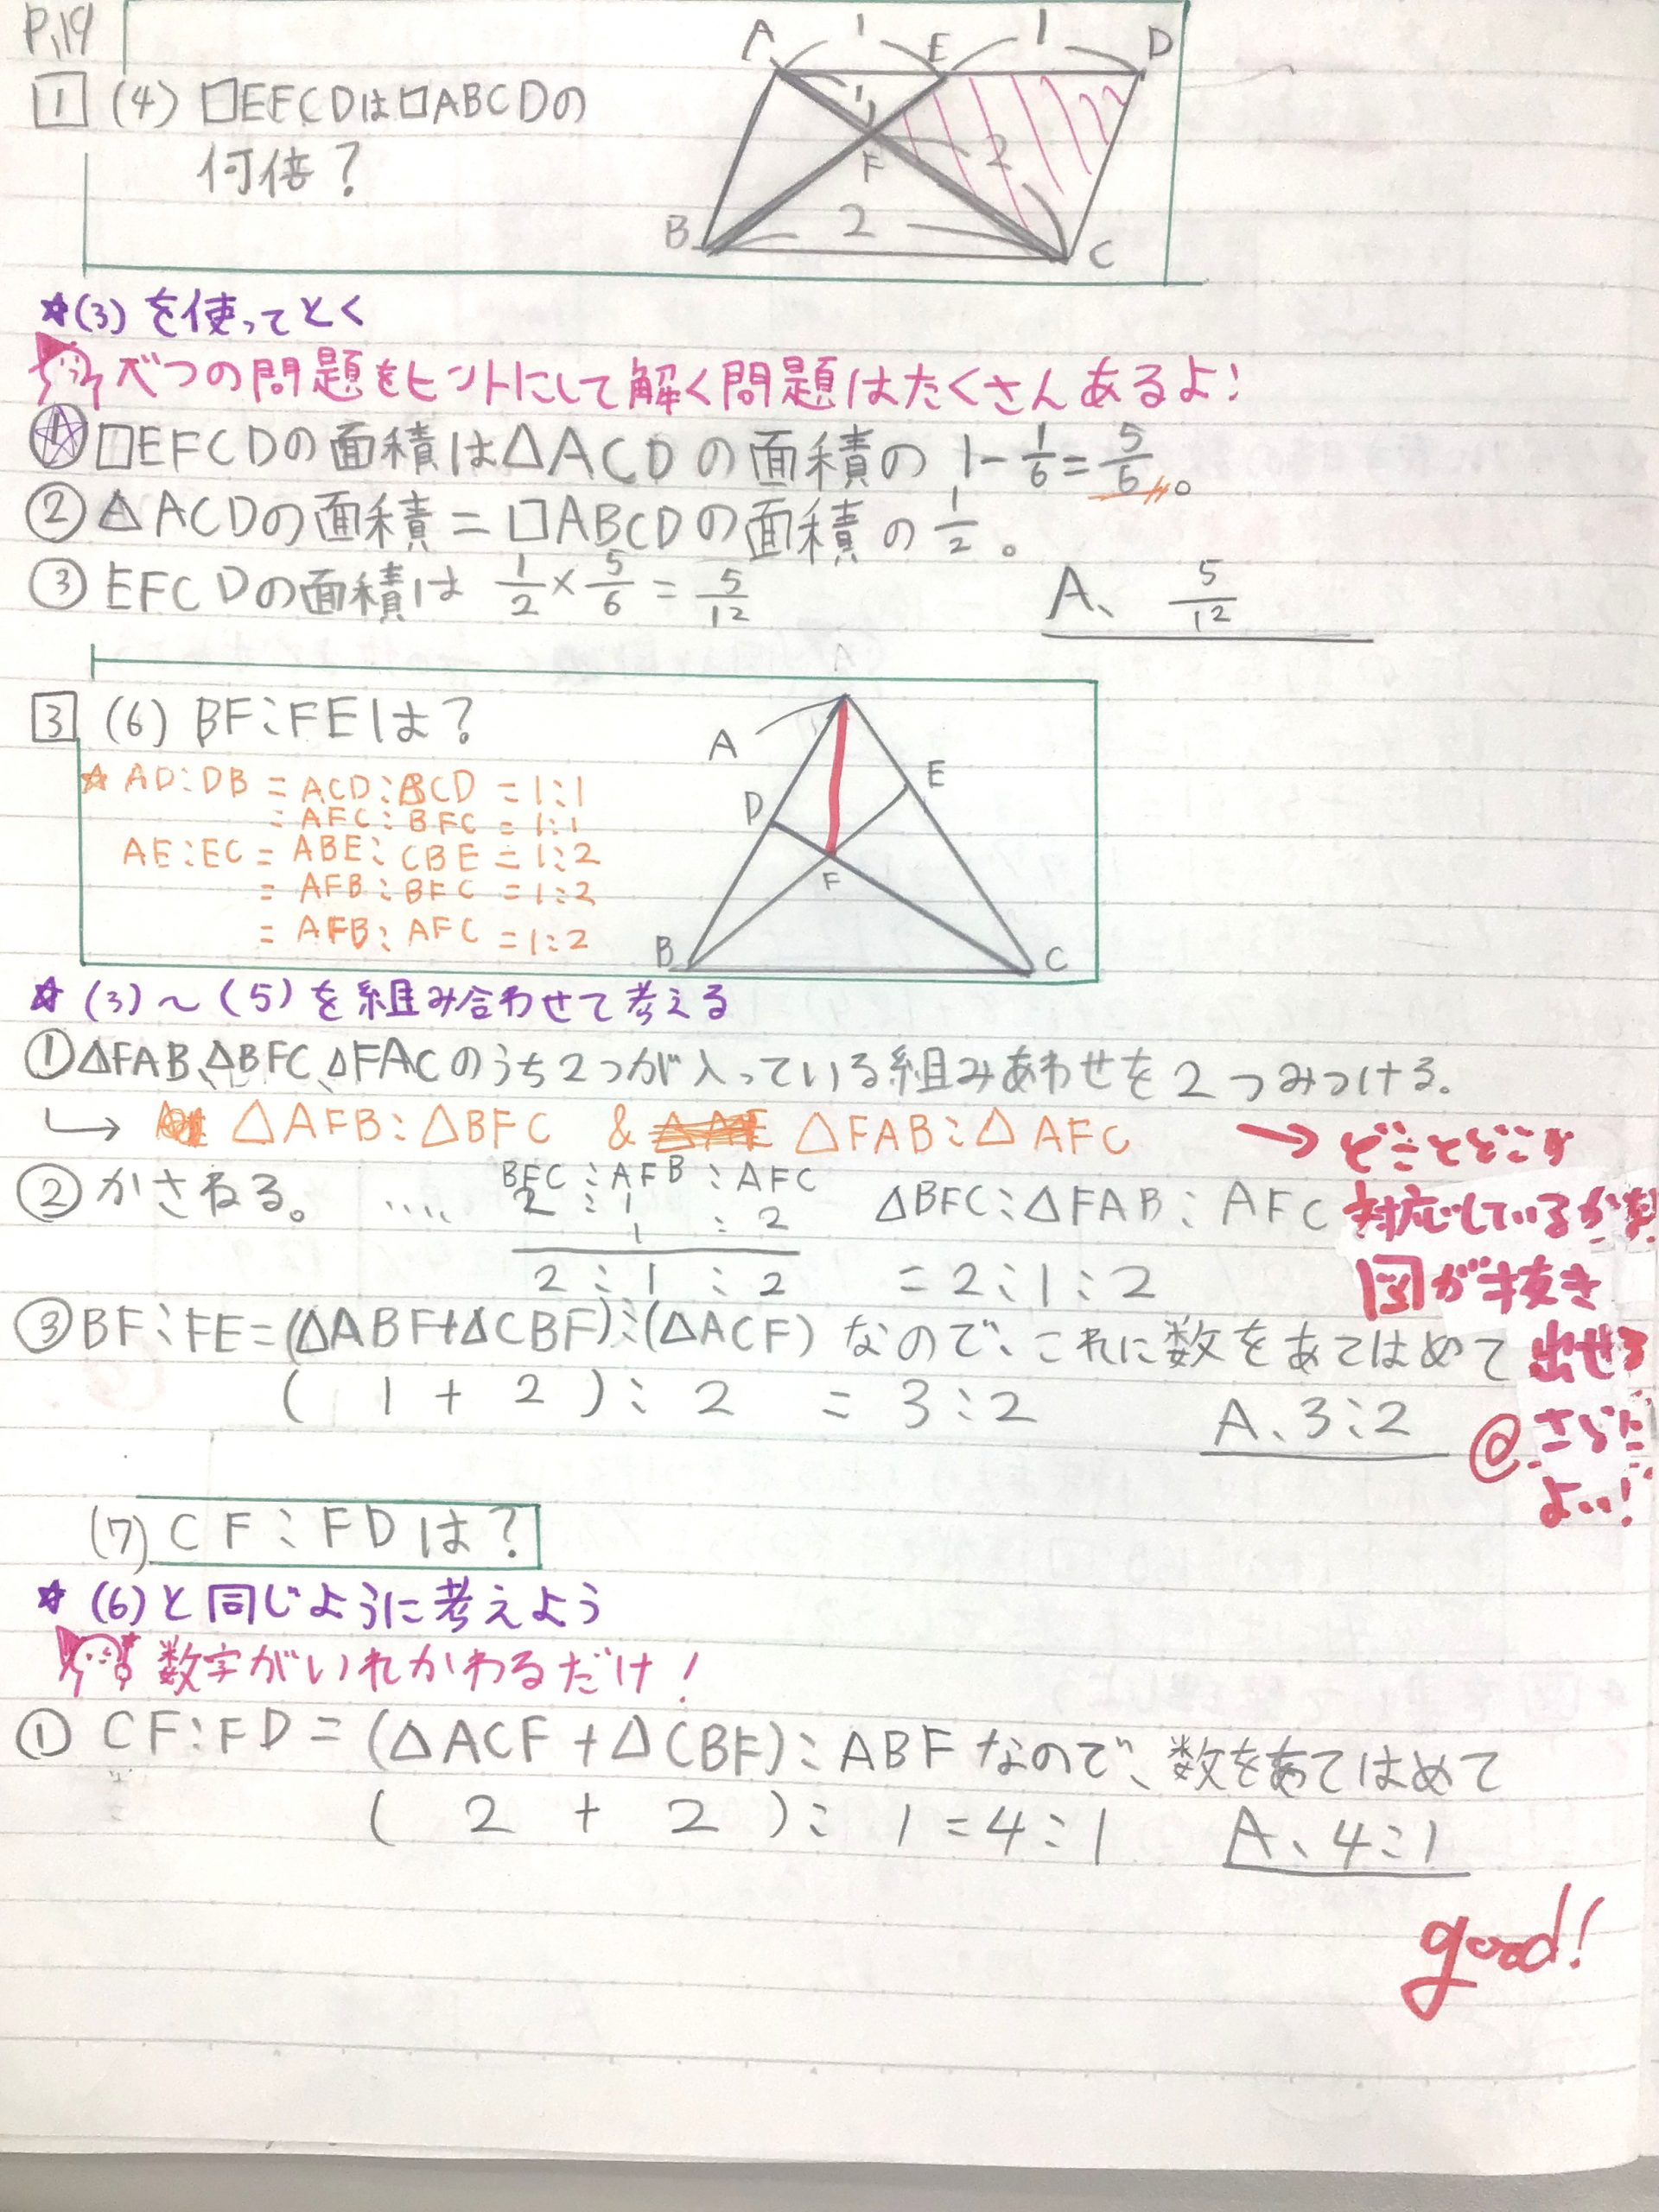 P.19
1 (4) □EFCDは□ABCDの
何倍？
A 1 E 1 D
1
F 2
B 2 C
☆(3)を使ってとく
べつの問題をヒントにして解く問題はたくさんあるよ！
① □EFCDの面積は△ACDの面積の 1-1/6=5/6。
② △ACDの面積＝□ABCDの面積の1/2。
③ EFCDの面積は 1/2×5/6=5/12
A、5/12
3 (6) BF:FEは？
☆ AD:DB = ACD:BCD = 1:1
= AFC:BFC = 1:1
AE:EC = ABE:CBE = 1:2
= AFB:BFC = 1:2
= AFB:AFC = 1:2
A
D E
F
B C
☆(3)〜(5)を組み合わせて考える
①△FAB、△BFC、△FACのうち2つが入っている組みあわせを2つみつける。
↳ △AFB:△BFC & △FAB:△AFC
②かさねる。 ‥‥ BFC:AFB:AFC
2:1
1:2
2:1:2
△BFC:△FAB:AFC
=2:1:2
→どことどこが
対応しているか
図が抜き
出せる
@さらに
よい！
③BF:FE=(△ABF+△CBF):(△ACF)なので、これに数をあてはめて
(1+2):2=3:2
A、3:2
(7) CF:FDは？
☆(6)と同じように考えよう
数字がいれかわるだけ！
① CF:FD=(△ACF+△CBF):ABFなので、数をあてはめて
(2+2):1=4:1
A、4:1
good!